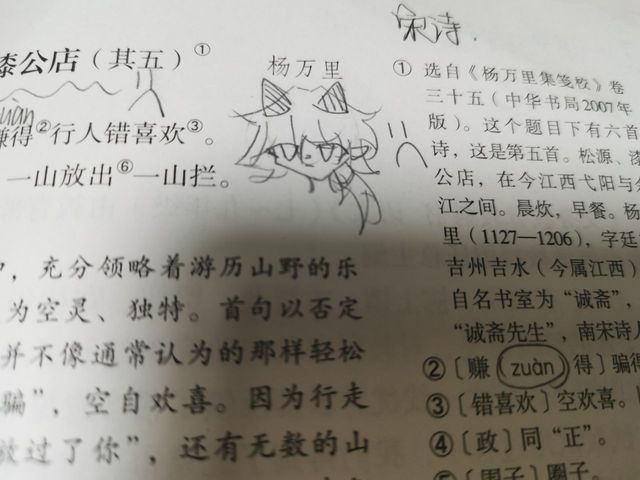 宋诗.
漆公店（其五）①
杨万里
uàn
赚得②行人错喜欢③。
一山放出⑥一山拦。
，充分领略着游历山野的乐
为空灵、独特。首句以否定
并不像通常认为的那样轻松
骗”，空自欢喜。因为行走
放过了你”，还有无数的山
① 选自《杨万里集笺校》卷
三十五（中华书局2007年
版）。这个题目下有六首
诗，这是第五首。松源、漆
公店，在今江西弋阳与余
江之间。晨炊，早餐。杨
里（1127—1206），字廷
吉州吉水（今属江西）
自名书室为“诚斋”，
“诚斋先生”，南宋诗人
②〔赚（zuàn）得〕骗得
③〔错喜欢〕空欢喜。
④〔政〕同“正”。
⑤〔围子〕圈子。